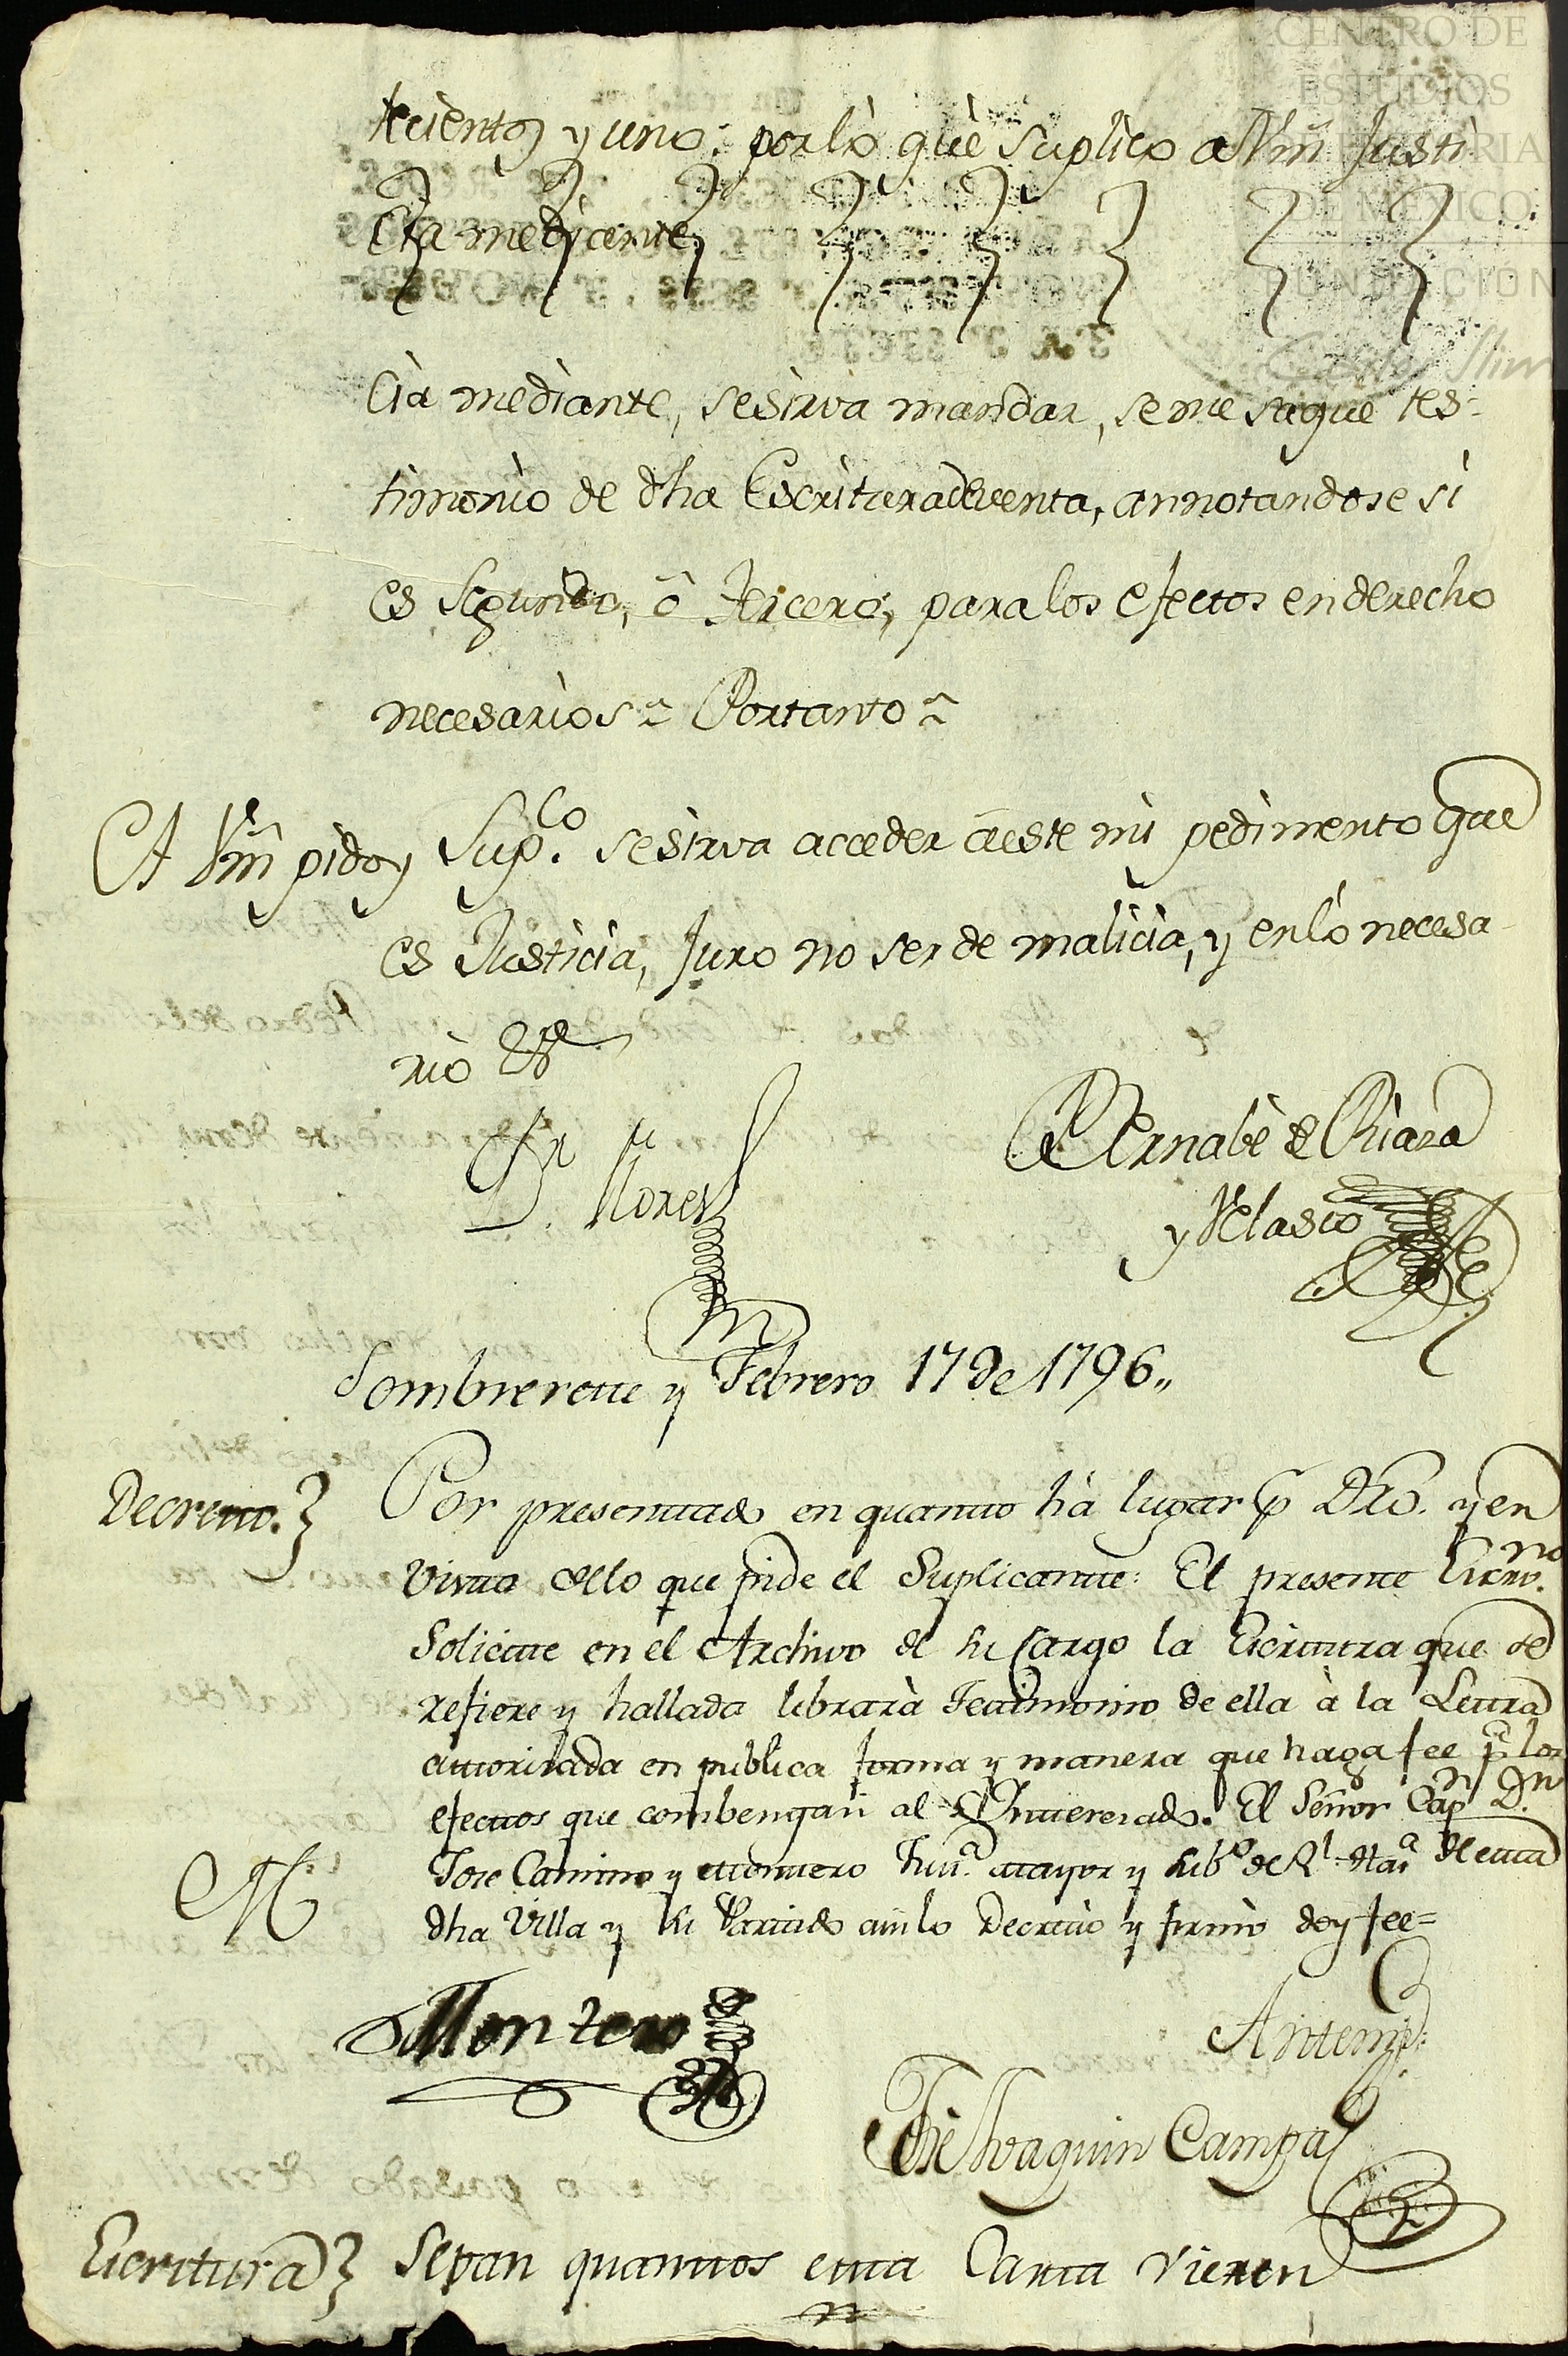 CENTRO DE
ESTUDIOS
DE HISTORIA
DE MÉXICO
FUNDACIÓN
Carlos Slim
tecientos y uno: por lò què suplico a Vm̃ Justi
Cia mediante,
Cia mediante, se sirva mandar, se me saque tes-
timonio de dha Escritura de venta, annotandose si
es Segundo, ô tercero, para los efectos en derecho
necesarios ~ Por tanto ~
A Vm̃ pido y Sup.co se sirva acceder à este mi pedimento que
es Justicia, Juro no ser de malicia, y en lò necesa-
rio &a
Bernabè de Riaza
y Velasco
D. Flores
Sombrerete y Febrero 17 de 1796,,
Decreto.
Por presentado en quanto hà lugar p. Dro. y en
Vista de lo que pide el Suplicante: El presente Escno.
Solicite en el Archivo de su Cargo la Escritura que se
refiere y hallada librarà Testimonio de ella à la Letra
autorisada en publica forma y manera que haga fee pa. los
efectos que combengan al Interesado. El Señor Capn. Dn.
Jose Camino y Montero Just.a mayor y Subo. de Rl. Haa. de esta
dha Villa y su Partido asi lo Decretò y firmò doy fee=
Montero
Antemi:
Jose Joaquin Campa
Escritura
Sepan quantos esta Carta vieren